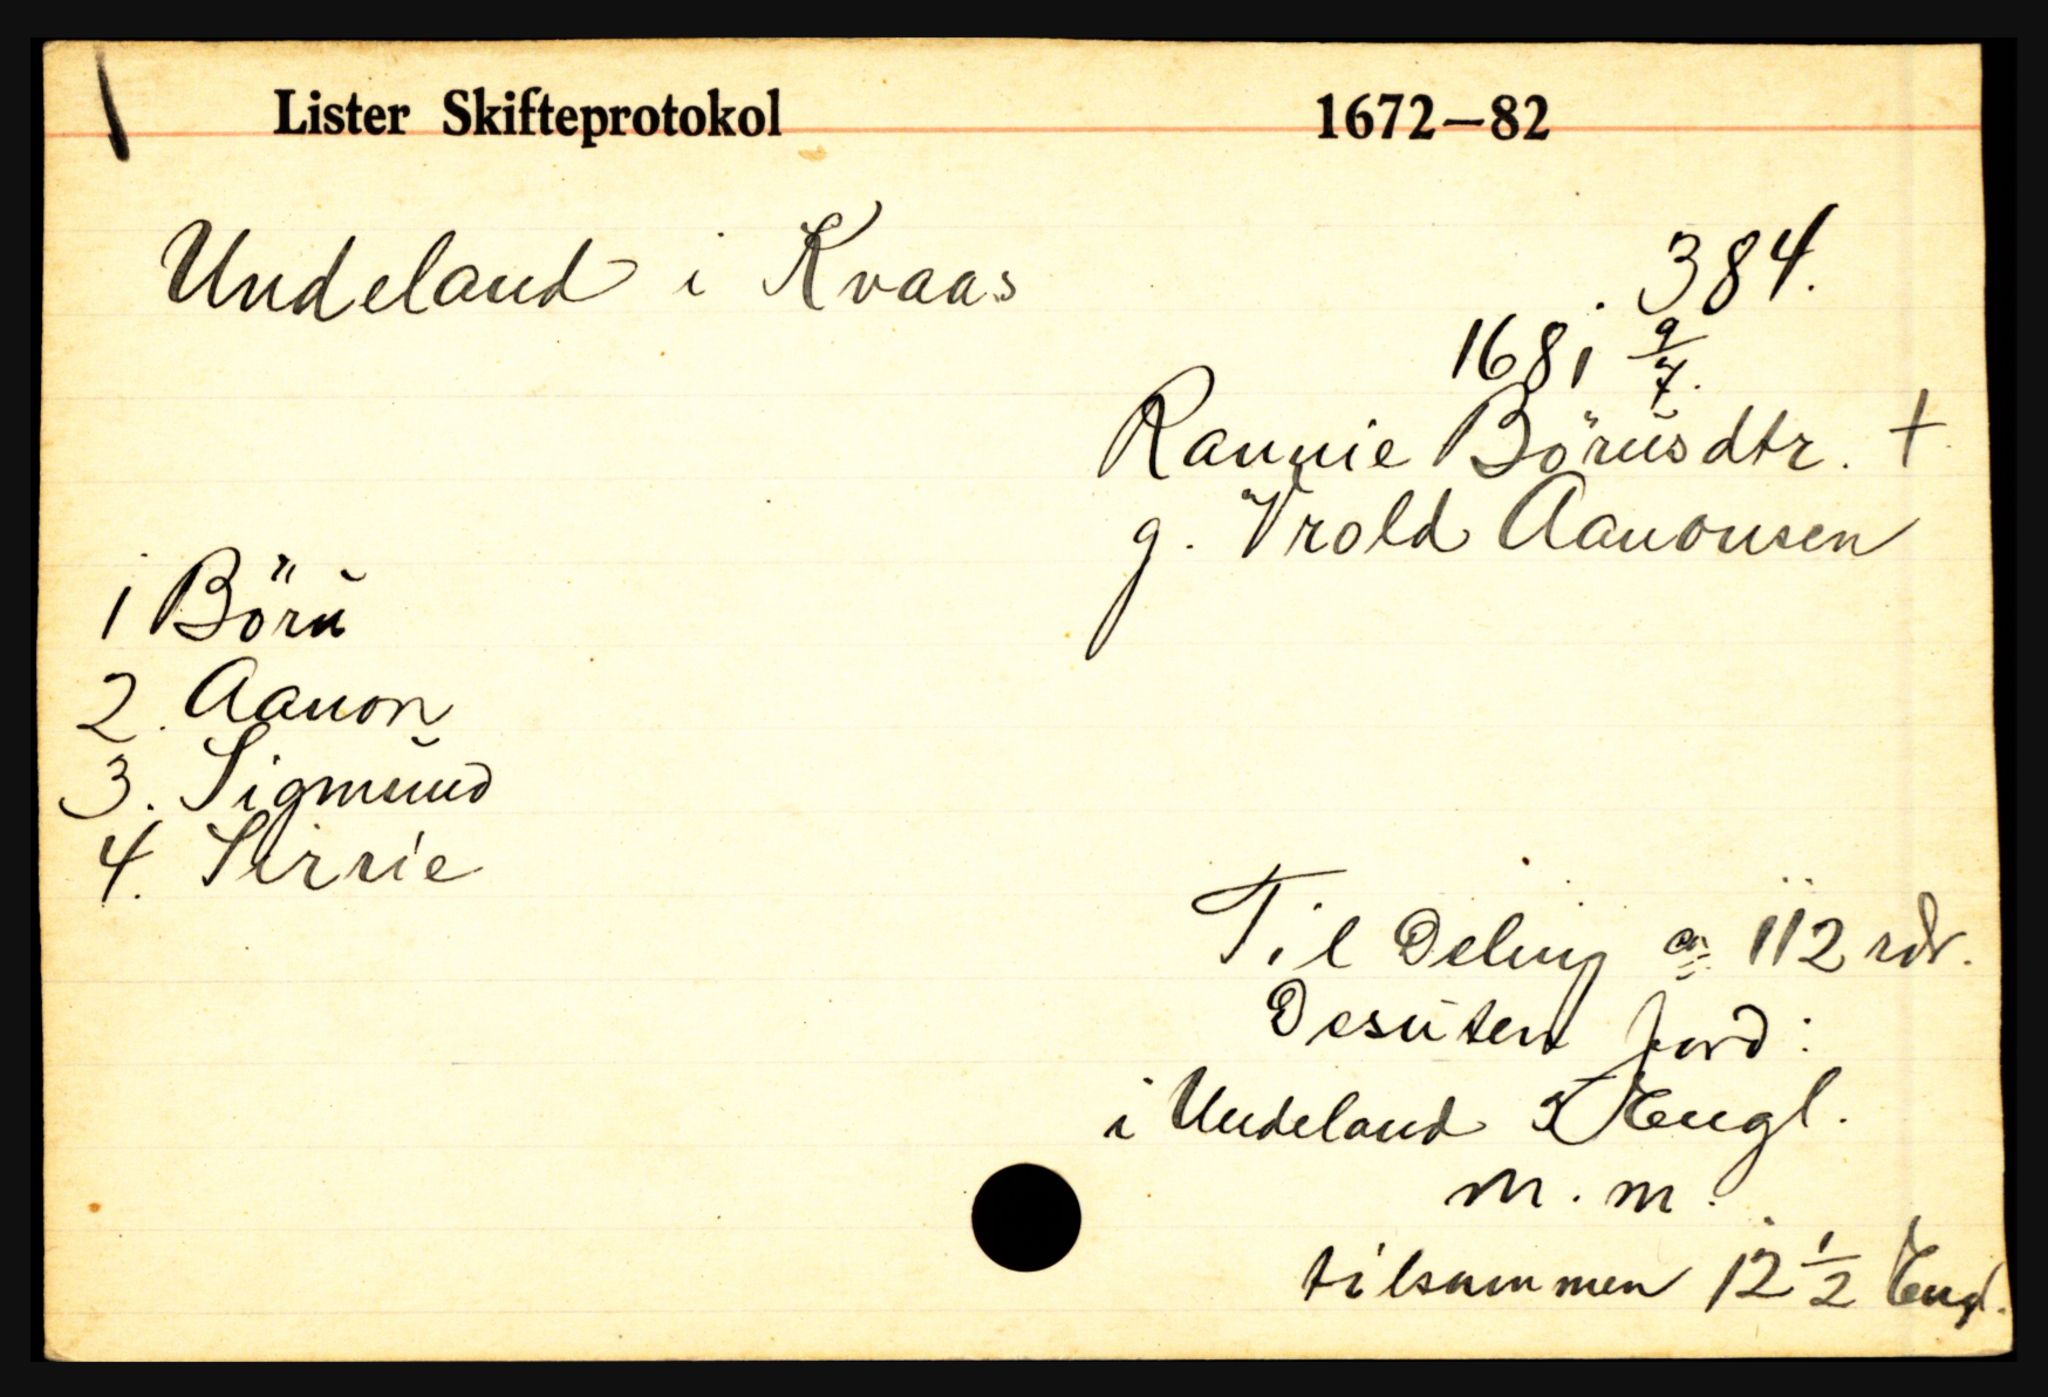 Lister Skifteprotokol 1672—82
Undeland i Kvaas
384.
1681 9/7.
Rannie Börusdtr. †
g. Vrold Aanonsen
1 Böru
2. Aanon
3. Sigmund
4. Sirrie
Til Deling 112 rdr.
Desuten jord:
i Undeland 3 Engl.
m. m.
tilsammen 12 1/2 Engl.